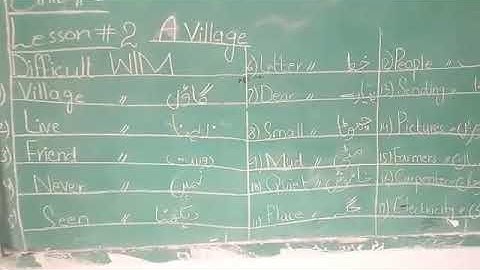 Lesson # 2 A Village
Difficult W/M
1) Village " گاؤں
2) Live " رہنا
3) Friend " دوست
Never " کبھی نہیں
Seen " دیکھنا
6) Letter " خط
7) Dear " پیارے
8) Small " چھوٹا
9) Mud " مٹی
10) Quiet " خاموش
11) Place " جگہ
12) People "
13) Sending "
14) Pictures "
15) Farmers "
16) Carpenter
17) Electricity "